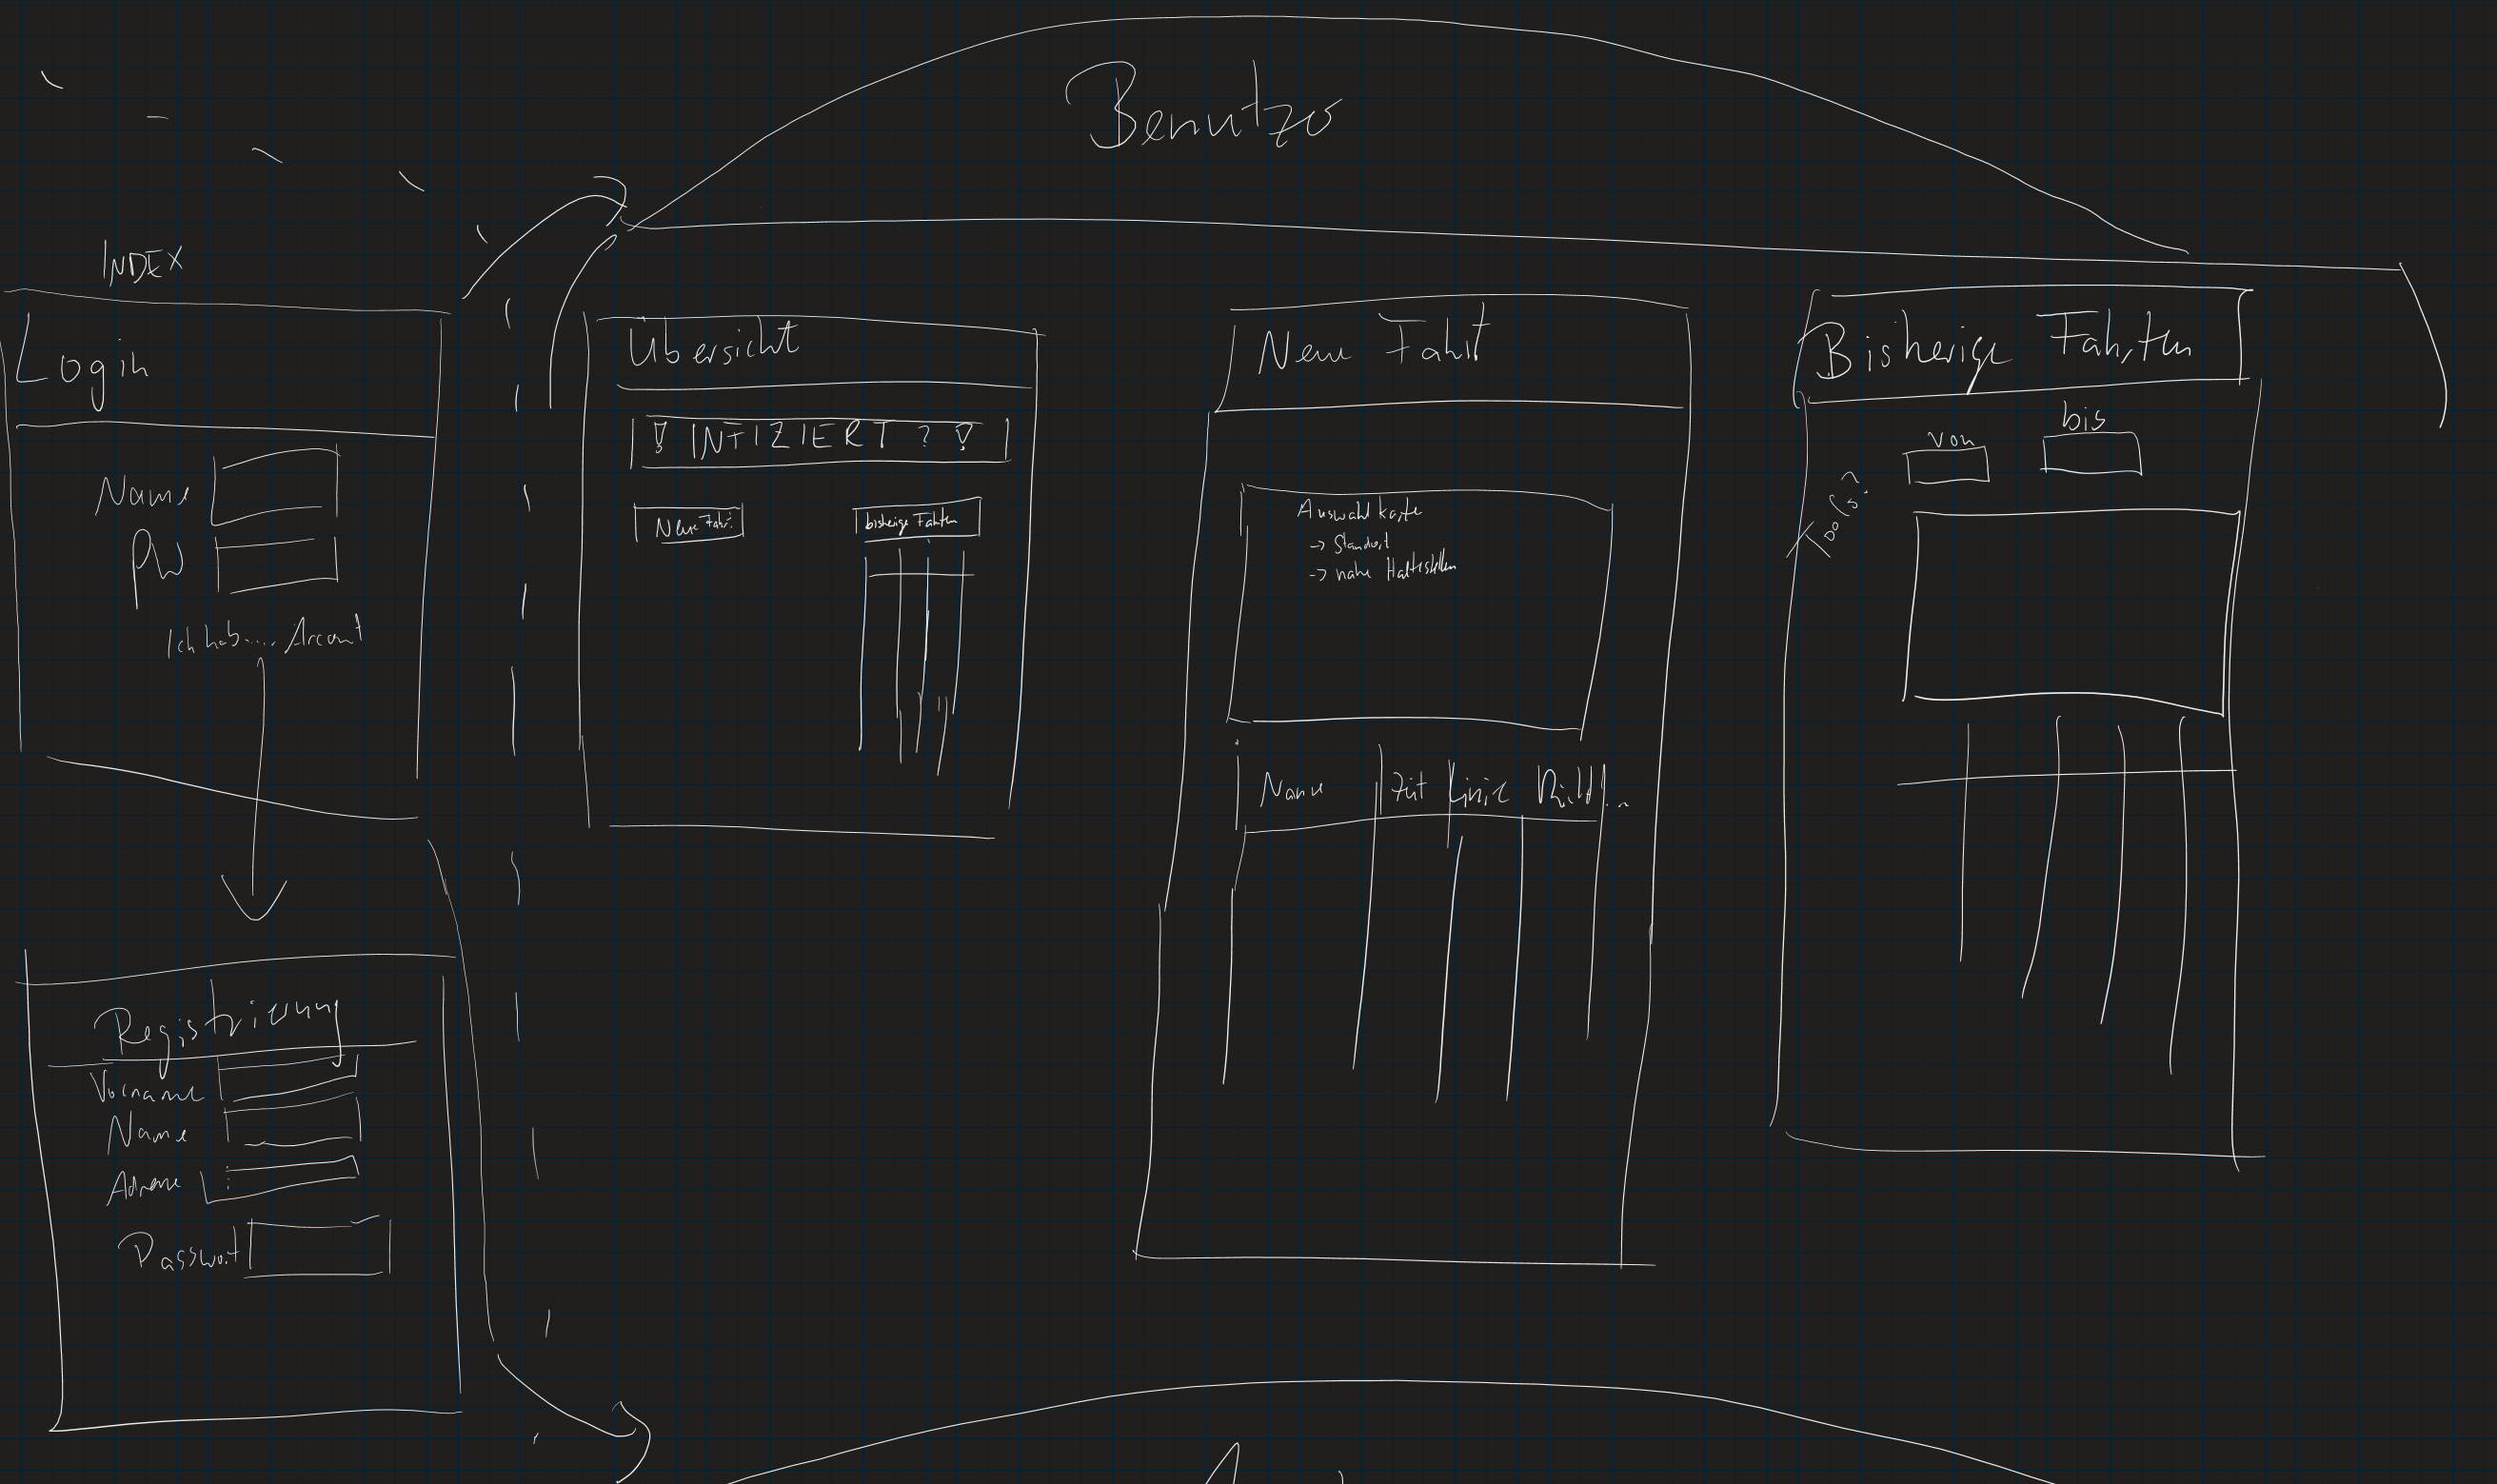 Benutzer
INDEX
Login
Name
PW
Ich hab.... Account
Registrierung
Vorname
Name
Adresse
Passwort
Übersicht
! INFIZIERT ? !
Neue Fahrt
bisherige Fahrten
Neue Fahrt
Auswahl Karte
-> Standort
-> nahe Haltestellen
Name Zeit Linie
Bisherige Fahrten
von bis